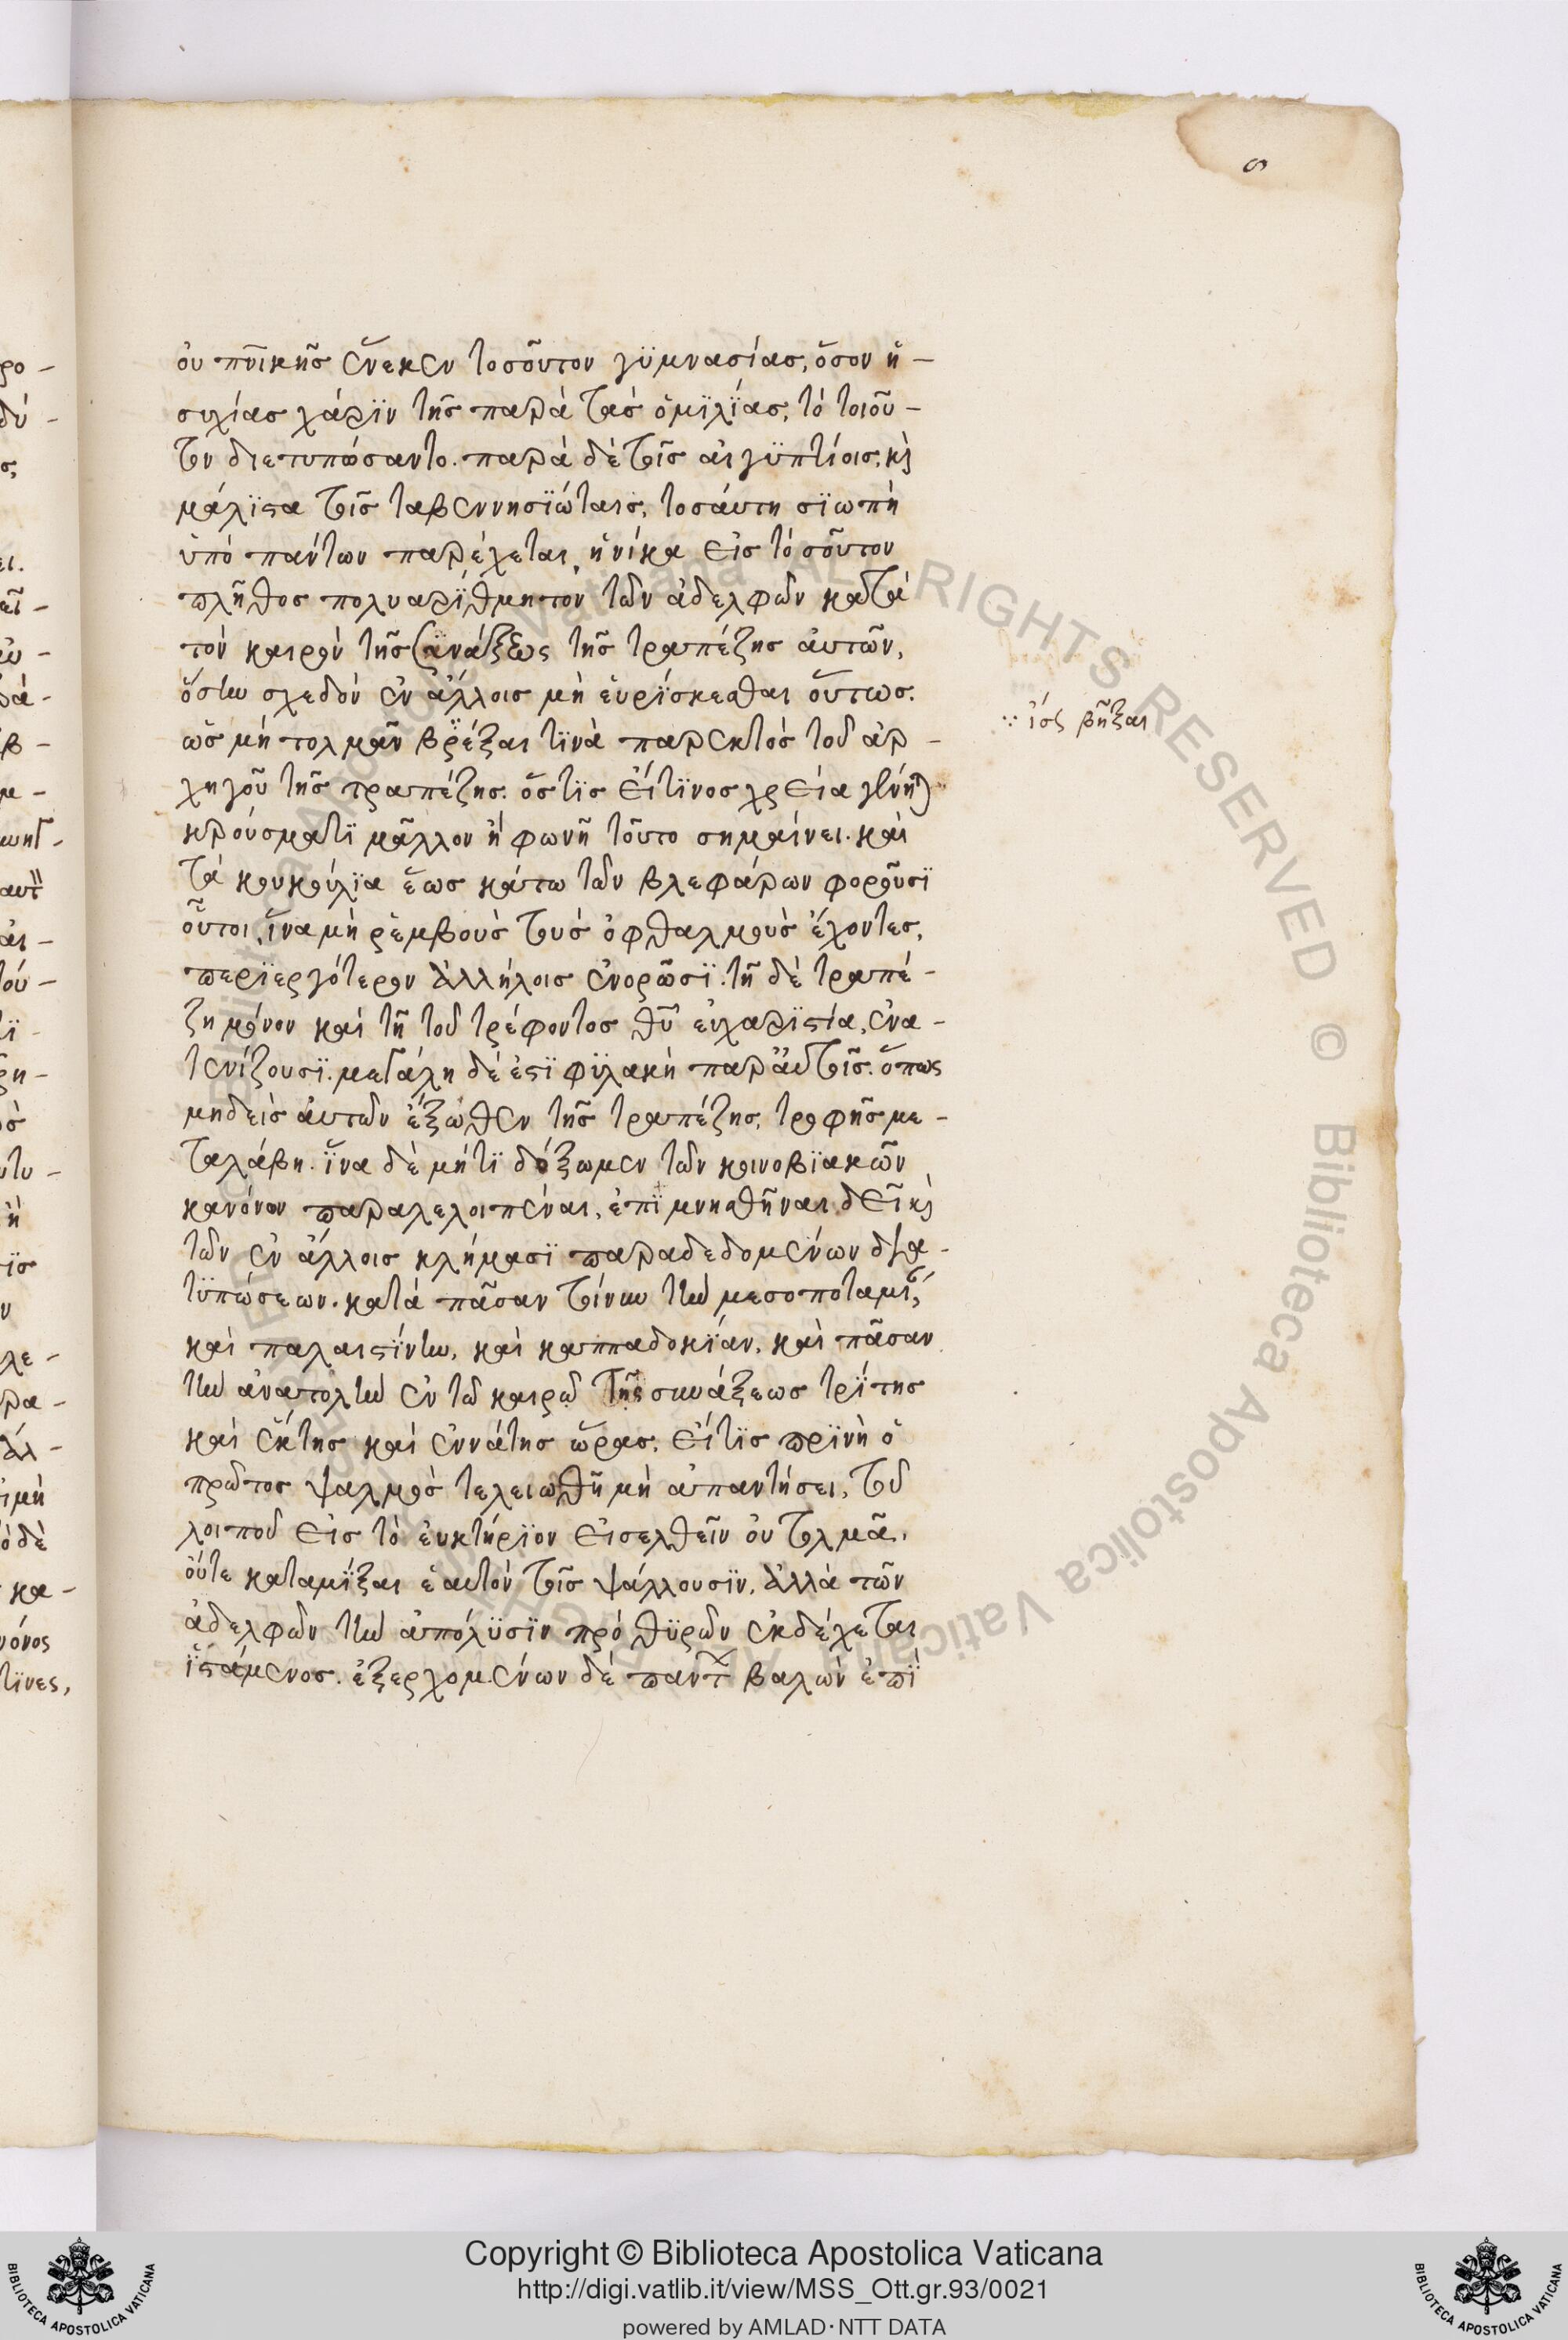 ϛ
οὐ πν̅ικῆς ἕνεκεν τοσοῦτον γϋμνασίας, ὅσον ἡ-
συχίας χάρϊν τῆς παρὰ τὰς ὁμϊλΐας, τὸ τοιοῦ-
τον διετυπώσαντο. παρὰ δὲ τοῖς αἰγϋπτίοις, κὶ
μάλϊστα τοῖς ταβεννησϊώταις, τοσάυτη σϊωπὴ
ὑπὸ πάντων παρέχεται, ἡνίκα εἰς τὸσοῦτον
πλῆθος πολυαρΐθμητον τῶν ἀδελφῶν κατὰ
τὸν καιρὸν τῆς συνάξεως τῆς τραπέζης ἀυτῶν,
ὅστω σχεδὸν ἐν ἄλλοις μὴ ἑυρΐσκεσθαι ὅυτως.
ὡς μὴ τολμᾶν βρέξαι τϊνὰ παρεκτὸς τοῦ ἀρ-
χηγοῦ τῆς τραπέζης. ὅστϊς εἴτϊνος χρεία γένηται
κρούσματϊ μᾶλλον ἢ φωνῇ τοῦτο σημαίνει. καὶ
τὰ κουκούλϊα ἕως κάτω τῶν βλεφάρων φοροῦσϊ
οὗτοι, ἵνα μὴ ῥεμβοὺς τοὺς ὀφθαλμοὺς ἔχοντες,
περϊεργότερον ἀλλήλοις ἐνορῶσϊ. τῇ δὲ τραπέ-
ζη μόνον καὶ τῇ τοῦ τρέφοντος θῦ ἐυχαρϊστία, ἐνα-
τενίζουσϊ. μεγάλη δέ ἐστϊ φϋλακὴ παρ ἀυτοῖς. ὅπως
μηδεὶς ἀυτῶν ἔξωθεν τῆς τραπέζης, τροφῆς με-
ταλάβη. ἵνα δὲ μήτϊ δόξωμεν τῶν κοινοβϊακῶν
κανόνων παραλελοιπέναι, ἐπϊμνησθῆναι δεῖ κὶ
τῶν ἐν ἄλλοις κλήμασϊ παραδεδομένων δια-
τϋπώσεων. κατὰ πᾶσαν τοίνυν τὴν μεσοποταμί,
καὶ παλαιστΐνην, καὶ καππαδοκΐαν, καὶ πᾶσαν
τὴν ἀνατολὴν ἐν τῶ καιρῶ τῆς συνάξεως τρΐτης
καὶ ἕκτης καὶ ἐννάτης ὥρας, εἴτϊς πρϊνὴ ὁ
πρῶτος ψαλμὸς τελειωθῆ μὴ ἀπαντήσει, τοῦ
λοιποῦ εἰς τὸ ἐυκτήρϊον εἰσελθεῖν οὐ τολμᾶ,
ὄυτε καταμΐξαι ἑαυτὸν τοῖς ψάλλουσϊν, ἀλλὰ τῶν
ἀδελφῶν τὴν ἀπόλϋσϊν πρὸ θϋρῶν ἐκδέχεται
ἱστάμενος. ἐξερχομένων δὲ παντ βαλὼν ἐπϊ
∵ ἴσς βῆξαι
Copyright © Biblioteca Apostolica Vaticana
http://digi.vatlib.it/view/MSS_Ott.gr.93/0021
powered by AMLAD·NTT DATA